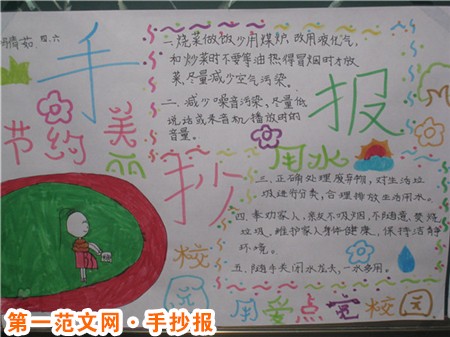 倩茹 四.六
手
抄
报
一.烧菜做饭少用煤炉,改用液化气,
和炒菜时不要等油热得冒烟时才放
菜,尽量减少空气污染。
二、减少噪音污染,尽量
说话或录音机播放时的
音量。
节约
美丽
用水
三.正确处理废弃物,对生活垃
圾进行分类,合理排放生活用水。
四、奉劝家人,亲友不吸烟,不随意焚烧
垃圾,维护家人身体健康,保持洁静
环境。
五、随手关闭水龙头,一水多用。
校
用爱点亮校园
第一范文网·手抄报